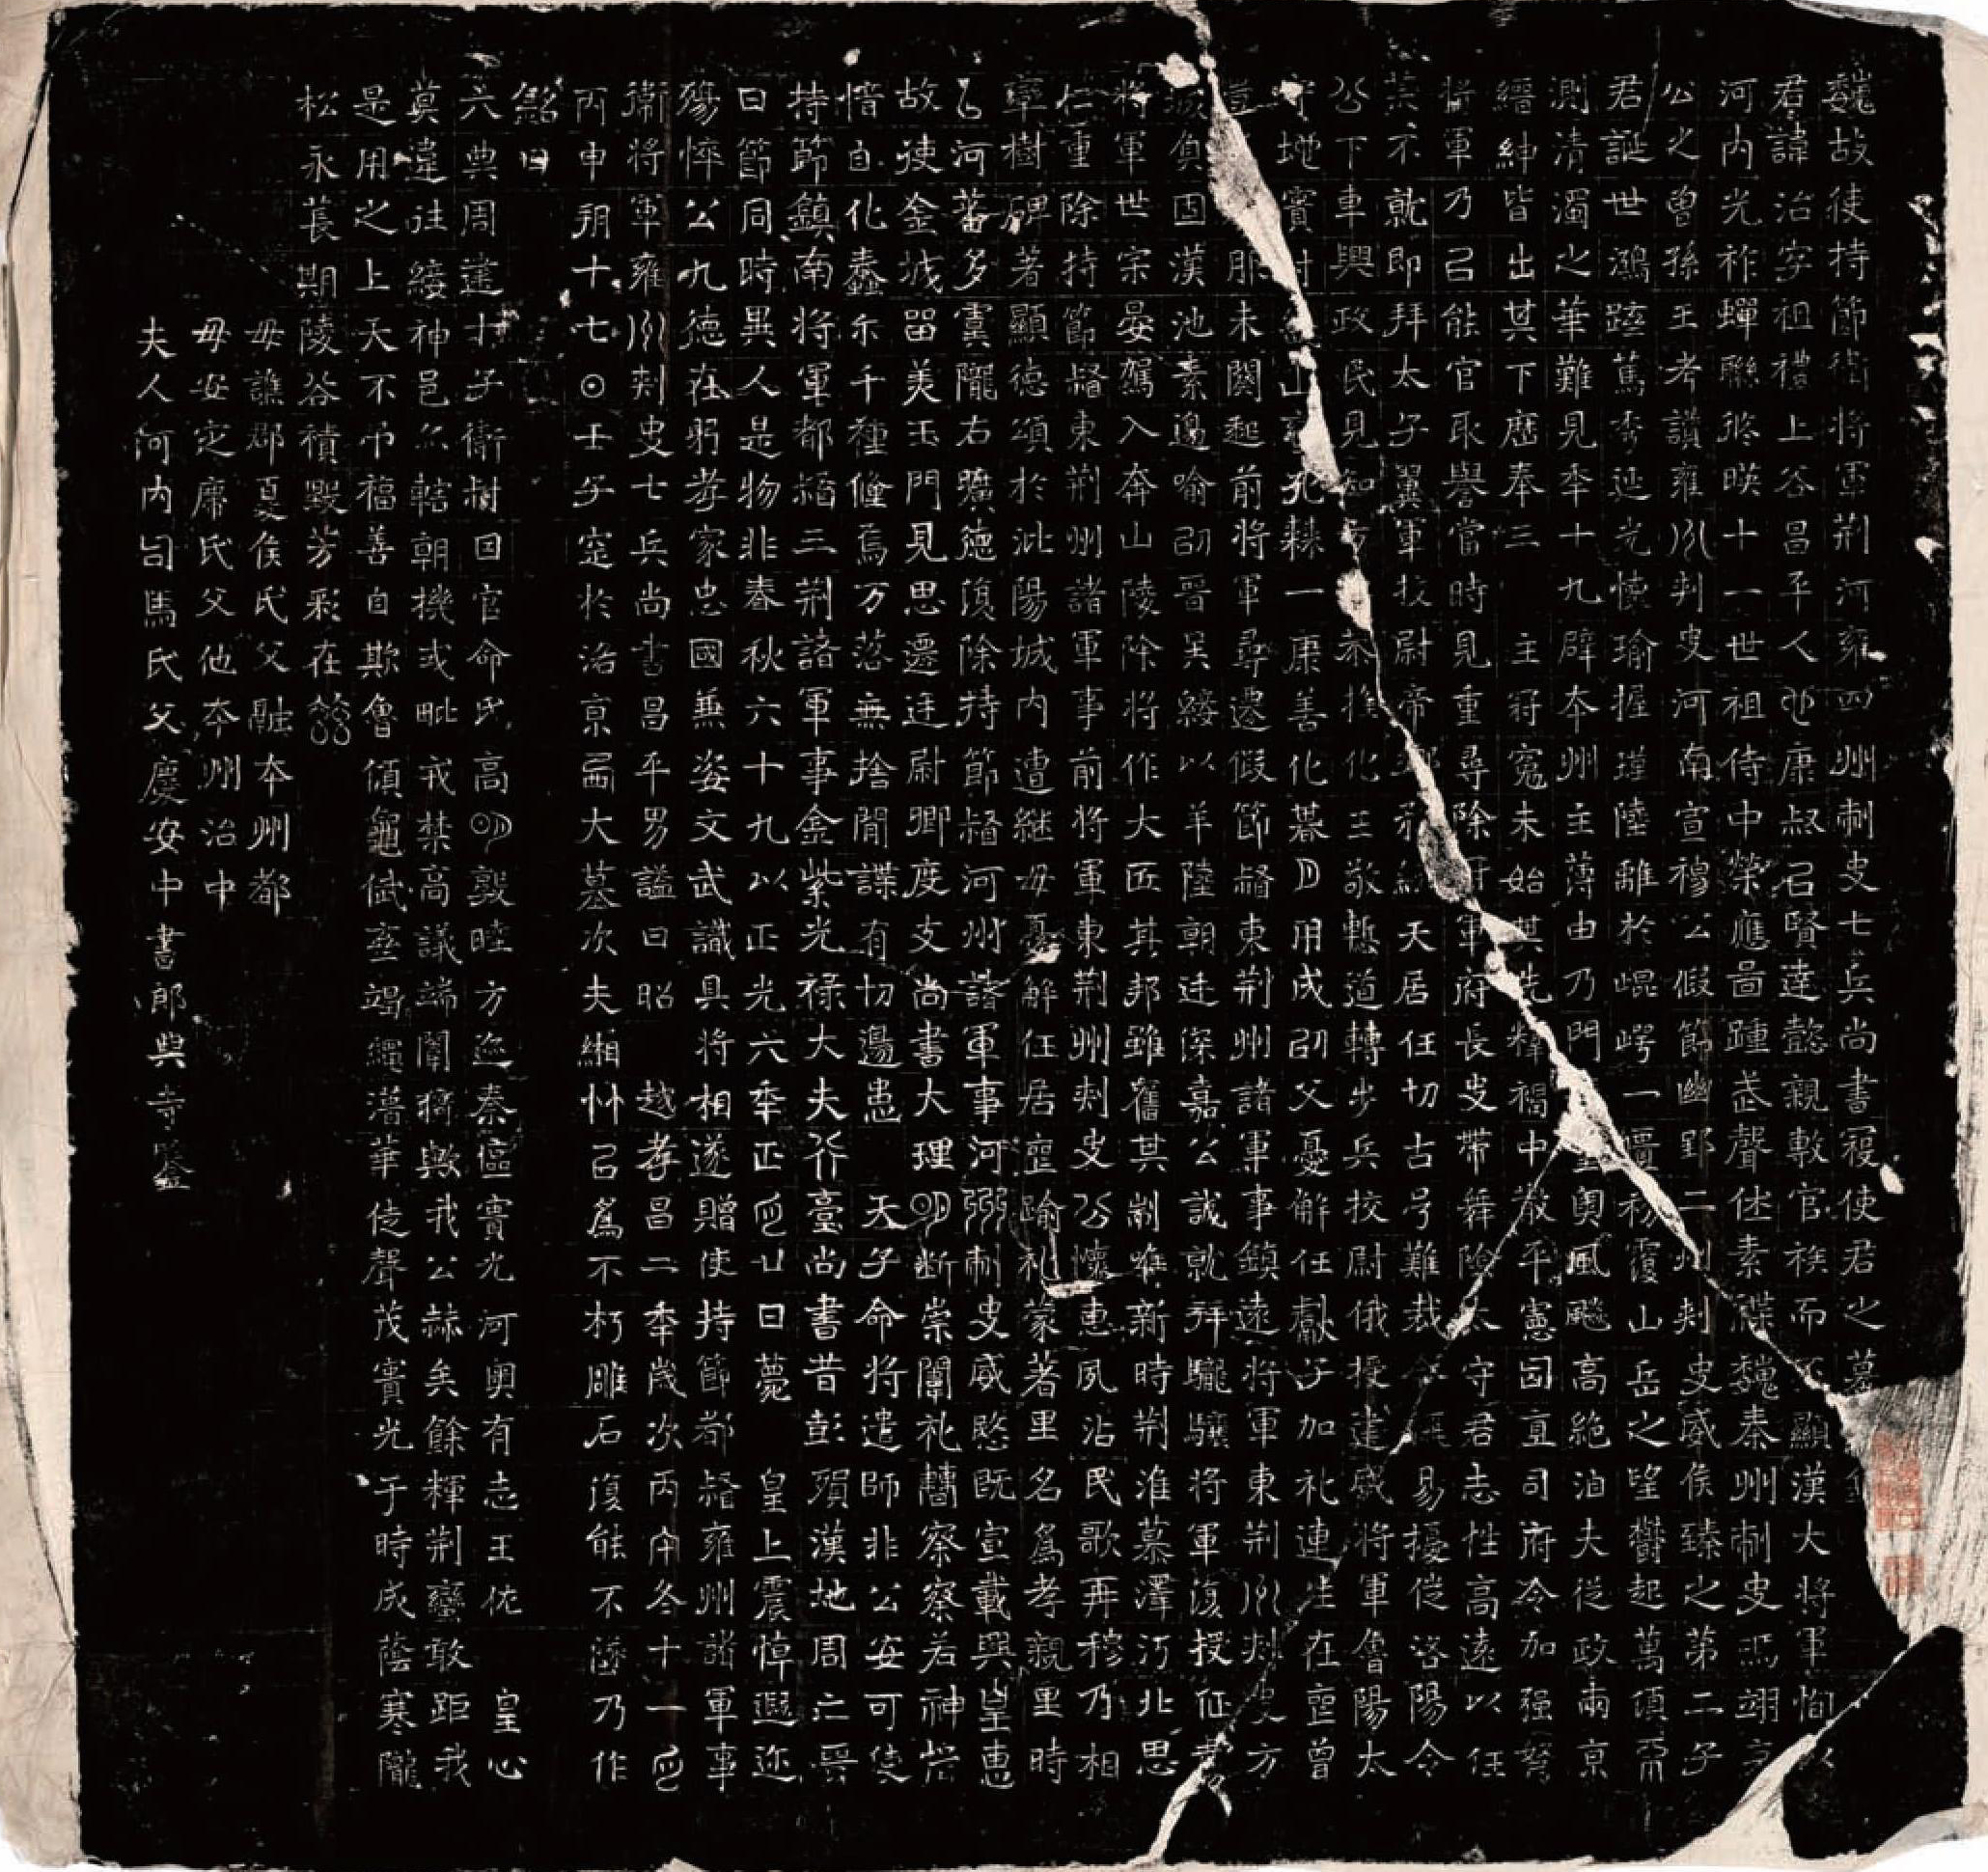 魏故使持節衛將軍荊河雍四州刺史七兵尚書寇使君之墓
君諱治字祖禮上谷昌平人也康叔已賢達懿親敷官族而 顯漢大將軍恂以
河內光祚蟬聯 暎十一世祖侍中榮應啚踵武聲伓素 魏秦州刺史馮翊
公之曾孫王考讃雍州刾史河南宣穆公假節幽郢二州刾史威侯臻之第二子
君誕世鴻蹤篤秀延光懷瑜握瑾陸離於崐崿一匱初覆山岳之望欝起萬頃
測清濁之華難見年十九辟本州主薄由乃門 奧風飈高絶洎夫従政兩京
縉紳皆出其下歷奉三 主冠寃未始其先釋褐中散平憲固直司府令加强弩
將軍乃已能官取譽當時見重尋除 軍府長史帶舞陰太守君志性高遠以任
莫不就即拜太子翼軍校尉帝 天居任切古号難裁 易擾従洛陽令
公下車興政民見知方未 化三敬慙道轉步兵校尉俄授建威將軍魯陽太
守地實 山 孔棘一康善化朞月用成卲父憂解任獻子加礼連 在亶曾
 服未闋起前將軍尋遷假節督東荊州諸軍事鎮遠將軍東荊州刾史方
城負固漢池素邊喻卲晉吴綏以羊陸朝廷深嘉公誠就拜驪驤將軍復授征
將軍世宗晏駕入奔山陵除將作大匠其邦雖舊其制唯新時荊淮慕澤沔北思
仁重除持節督東荊州諸軍事前將軍東荊州刾史公懷惠夙沾民歌再穆乃相
率樹碑著顯德頌於沘陽城內遭継母憂解任居亶踰礼蒙著里名為孝親里時
已河蕃多 隴右曠德復除持節督河州諸軍事河州刺史威愍既宣載興皇惠
故使金城留美玉門見思遷廷尉卿度支尚書大理明断崇闡礼 察察若神
惛自化蠢尒千種倏焉万落無捨閒諜有切邊患 天子命將遣師非公安可使
持節鎮南將軍都督三荊諸軍事金紫光祿大夫行臺尚書昔彭殞漢地周亡晉
曰節同時異人是物非春秋六十九以正光六年正月廿日薨 皇上震悼遐迩
殤悴公九德在躬孝家忠國兼姿文武識具將相遂贈使持節都督雍州諸軍事
衛將軍雍州刾史七兵尚書昌平男謚曰昭 越孝昌二年歲次丙午冬十一月
丙申朔十七日壬子窆於洛京西大墓次夫緗竹已為不朽雕石復能不墜乃作
銘曰
六典周建 子衛樹因官命氏高明敦睦方迩秦區寶光河奧有志王佐 皇心
莫違往綏神邑尒轄朝機或毗戎禁高議端闈猗歟我公赫矣餘輝荊蠻敢距我
是用之上天不弔福善自欺魯傾龜 竭 華徒聲茂實光于時成蔭寒隴
松永萇期陵谷積毀芳彩在茲
母譙郡夏侯氏父融本州都
母安定席氏父他本州治中
夫人河內司馬氏父慶安中書郎典寺